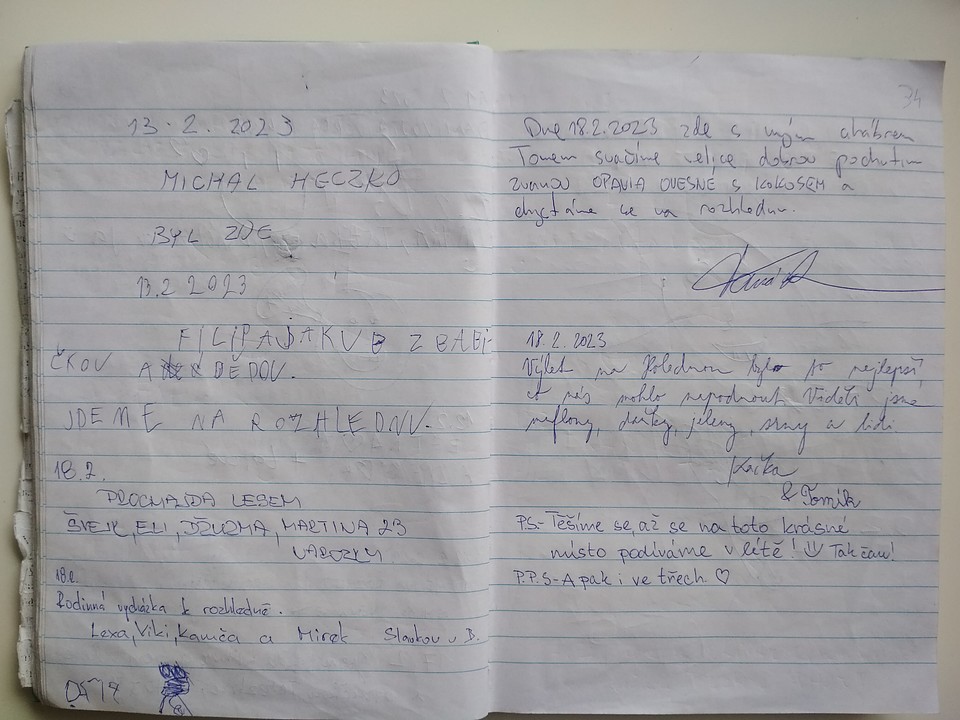 13.2. 2023
MICHAL HECZKO
BYL ZDE
13.2 2023
FILIP A JAKUB Z BABI-
ČKOV A DEDOV.
JDEME NA ROZHLEDNU.
18.2.
PROCHAJDA LESEM
ŠVEJK, ELI, DŽUZMA, MARTINA 23
18.2.
Rodinná vycházka k rozhledně.
Lexa, Viki, Kamča a Mirek Slavkov u B.
34
Dne 18.2.2023 zde s mým chábrem
Tomem svačíme velice dobrou pochutinu
zvanou OPAVIA OVESNÉ s KOKOSEM a
chystáme se na rozhlednu.
18.2.2023
Výlet na bylo to nejlepší
co nás mohlo napadnout Viděli jsme
muflony, daňky, jeleny, srny a lidi.
Kačka
& Tomík
P.S- Těšíme se, až se na toto krásné
místo podíváme v létě! ☺ Tak čau!
P.P.S-A pak i ve třech ♡